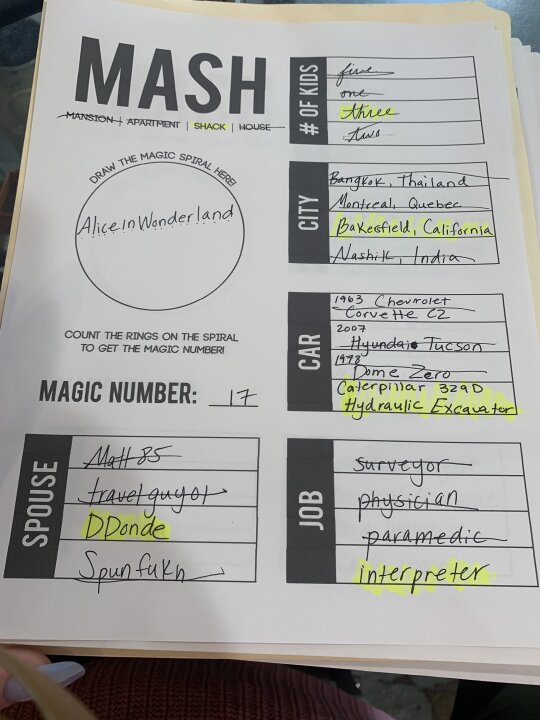 MASH
MANSION | APARTMENT | SHACK | HOUSE
DRAW THE MAGIC SPIRAL HERE!
Alice in Wonderland
COUNT THE RINGS ON THE SPIRAL
TO GET THE MAGIC NUMBER!
MAGIC NUMBER: 17
# OF KIDS
five
one
three
two
CITY
Bangkok, Thailand
Montreal, Quebec
Bakersfield, California
Nashik, India
CAR
1963 Chevrolet
Corvette C2
2007
Hyundai Tucson
1978
Dome Zero
Caterpillar 329D
Hydraulic Excavator
SPOUSE
Matt 85
travelguy01
DDonde
Spunfukh
JOB
surveyor
physician
paramedic
interpreter